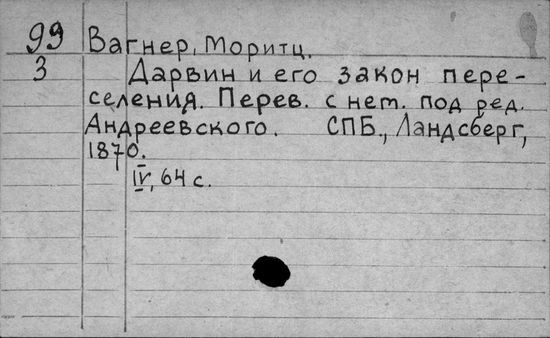 99 Вагнер, Мориц.
3 Дарвин и его закон пере-
селения. Перев. с нем. под ред.
Андреевского. СПБ., Ландсберг,
1870.
IV, 64 с.